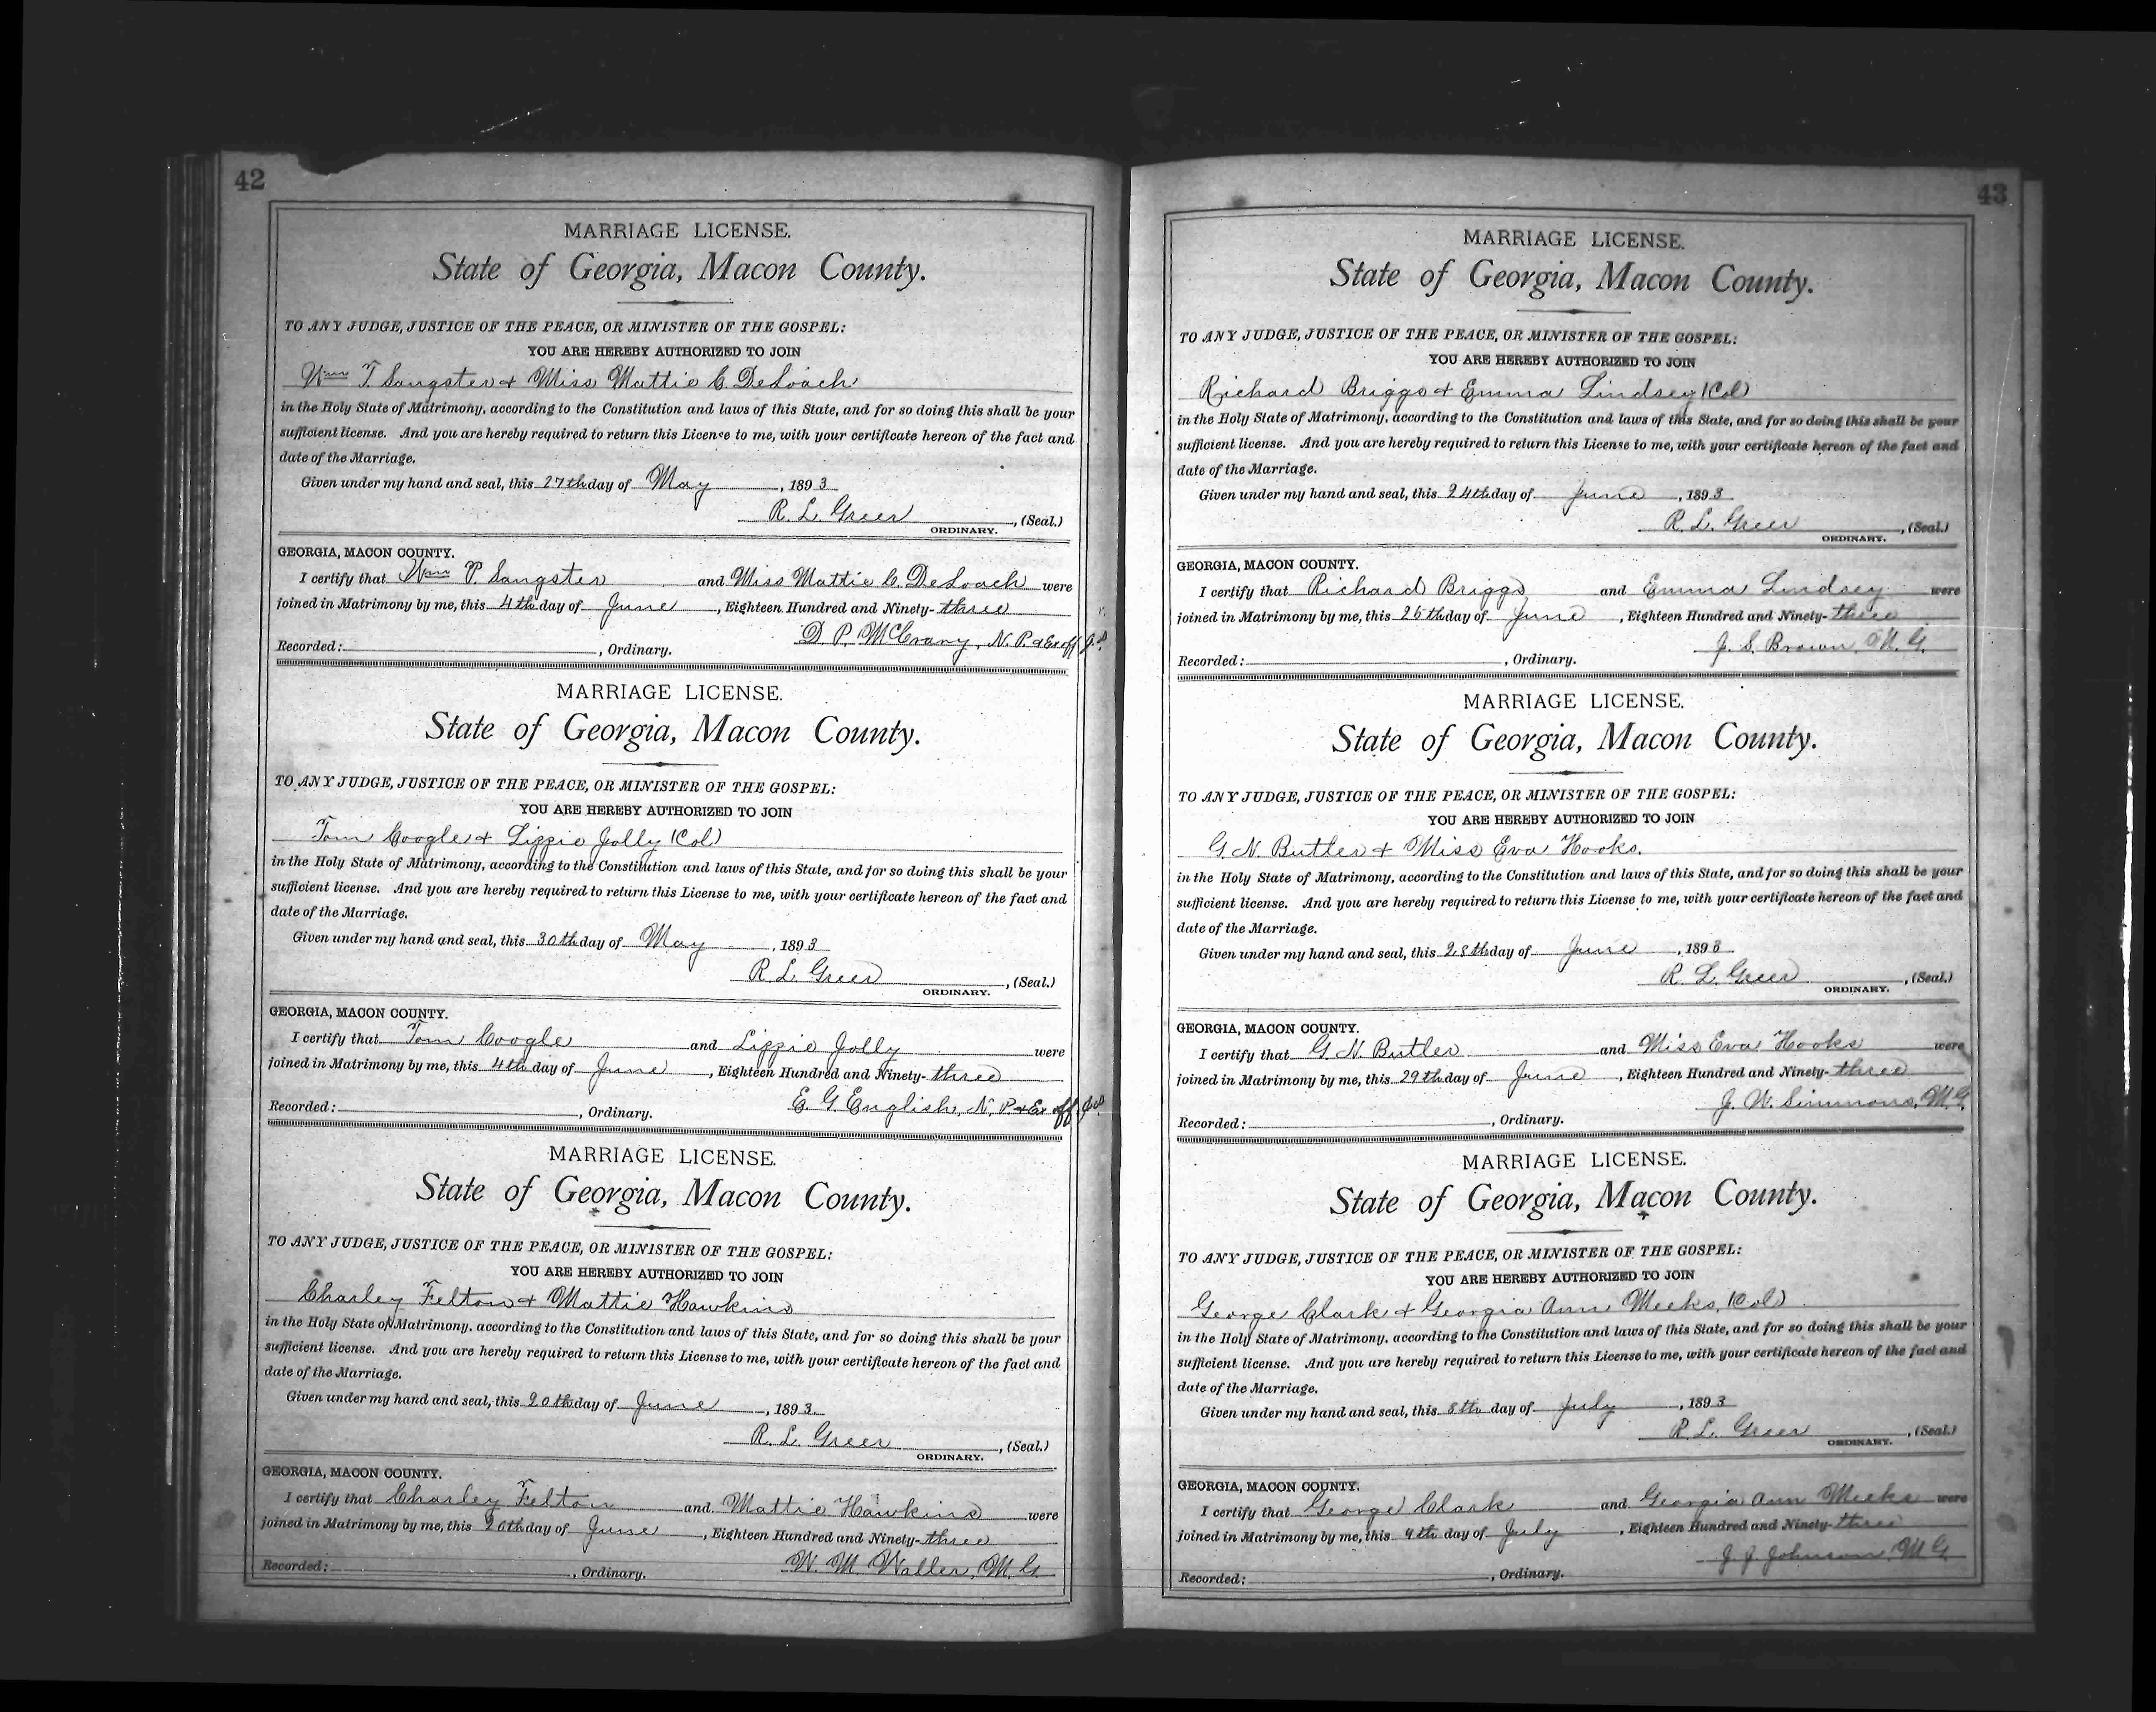 42
MARRIAGE LICENSE.
State of Georgia, Macon County.
TO ANY JUDGE, JUSTICE OF THE PEACE, OR MINISTER OF THE GOSPEL:
YOU ARE HEREBY AUTHORIZED TO JOIN
Wm T. Sangster & Miss Mattie C. DeLoach
in the Holy State of Matrimony, according to the Constitution and laws of this State, and for so doing this shall be your
sufficient license. And you are hereby required to return this License to me, with your certificate hereon of the fact and
date of the Marriage.
Given under my hand and seal, this 27th day of May, 1893
R. L. Greer, (Seal.)
ORDINARY.
GEORGIA, MACON COUNTY.
I certify that Wm P. Sangster and Miss Mattie C. DeLoach were
joined in Matrimony by me, this 4th day of June, Eighteen Hundred and Ninety-three
D. P. McCrany, N. P. & Ex off J.P.
Recorded: , Ordinary.
MARRIAGE LICENSE.
State of Georgia, Macon County.
TO ANY JUDGE, JUSTICE OF THE PEACE, OR MINISTER OF THE GOSPEL:
YOU ARE HEREBY AUTHORIZED TO JOIN
Tom Coogle & Lizzie Jolly (Col)
in the Holy State of Matrimony, according to the Constitution and laws of this State, and for so doing this shall be your
sufficient license. And you are hereby required to return this License to me, with your certificate hereon of the fact and
date of the Marriage.
Given under my hand and seal, this 30th day of May, 1893
R. L. Greer, (Seal.)
ORDINARY.
GEORGIA, MACON COUNTY.
I certify that Tom Coogle and Lizzie Jolly were
joined in Matrimony by me, this 4th day of June, Eighteen Hundred and Ninety-three
E. G. English, N. P. & Ex off
Recorded: , Ordinary.
MARRIAGE LICENSE.
State of Georgia, Macon County.
TO ANY JUDGE, JUSTICE OF THE PEACE, OR MINISTER OF THE GOSPEL:
YOU ARE HEREBY AUTHORIZED TO JOIN
Charley Felton & Mattie Hawkins
in the Holy State of Matrimony, according to the Constitution and laws of this State, and for so doing this shall be your
sufficient license. And you are hereby required to return this License to me, with your certificate hereon of the fact and
date of the Marriage.
Given under my hand and seal, this 20th day of June, 1893.
R. L. Greer, (Seal.)
ORDINARY.
GEORGIA, MACON COUNTY.
I certify that Charley Felton and Mattie Hawkins were
joined in Matrimony by me, this 20th day of June, Eighteen Hundred and Ninety-three
W. M. Waller, M. G.
Recorded: , Ordinary.
43
MARRIAGE LICENSE.
State of Georgia, Macon County.
TO ANY JUDGE, JUSTICE OF THE PEACE, OR MINISTER OF THE GOSPEL:
YOU ARE HEREBY AUTHORIZED TO JOIN
Richard Briggs & Emma Lindsey (Col)
in the Holy State of Matrimony, according to the Constitution and laws of this State, and for so doing this shall be your
sufficient license. And you are hereby required to return this License to me, with your certificate hereon of the fact and
date of the Marriage.
Given under my hand and seal, this 24th day of June, 1893
R. L. Greer, (Seal.)
ORDINARY.
GEORGIA, MACON COUNTY.
I certify that Richard Briggs and Emma Lindsey were
joined in Matrimony by me, this 25th day of June, Eighteen Hundred and Ninety-three
J. S. Brown, M. G.
Recorded: , Ordinary.
MARRIAGE LICENSE.
State of Georgia, Macon County.
TO ANY JUDGE, JUSTICE OF THE PEACE, OR MINISTER OF THE GOSPEL:
YOU ARE HEREBY AUTHORIZED TO JOIN
G. N. Butler & Miss Eva Hooks.
in the Holy State of Matrimony, according to the Constitution and laws of this State, and for so doing this shall be your
sufficient license. And you are hereby required to return this License to me, with your certificate hereon of the fact and
date of the Marriage.
Given under my hand and seal, this 28th day of June, 1893
R. L. Greer, (Seal.)
ORDINARY.
GEORGIA, MACON COUNTY.
I certify that G. N. Butler and Miss Eva Hooks were
joined in Matrimony by me, this 29th day of June, Eighteen Hundred and Ninety-three
J. W. Simmons, M. G.
Recorded: , Ordinary.
MARRIAGE LICENSE.
State of Georgia, Macon County.
TO ANY JUDGE, JUSTICE OF THE PEACE, OR MINISTER OF THE GOSPEL:
YOU ARE HEREBY AUTHORIZED TO JOIN
George Clark & Georgia Ann Meeks, (Col)
in the Holy State of Matrimony, according to the Constitution and laws of this State, and for so doing this shall be your
sufficient license. And you are hereby required to return this License to me, with your certificate hereon of the fact and
date of the Marriage.
Given under my hand and seal, this 8th day of July, 1893
R. L. Greer, (Seal.)
ORDINARY.
GEORGIA, MACON COUNTY.
I certify that George Clark and Georgia Ann Meeks were
joined in Matrimony by me, this 9th day of July, Eighteen Hundred and Ninety-three
J. J. Johnson, M. G.
Recorded: , Ordinary.